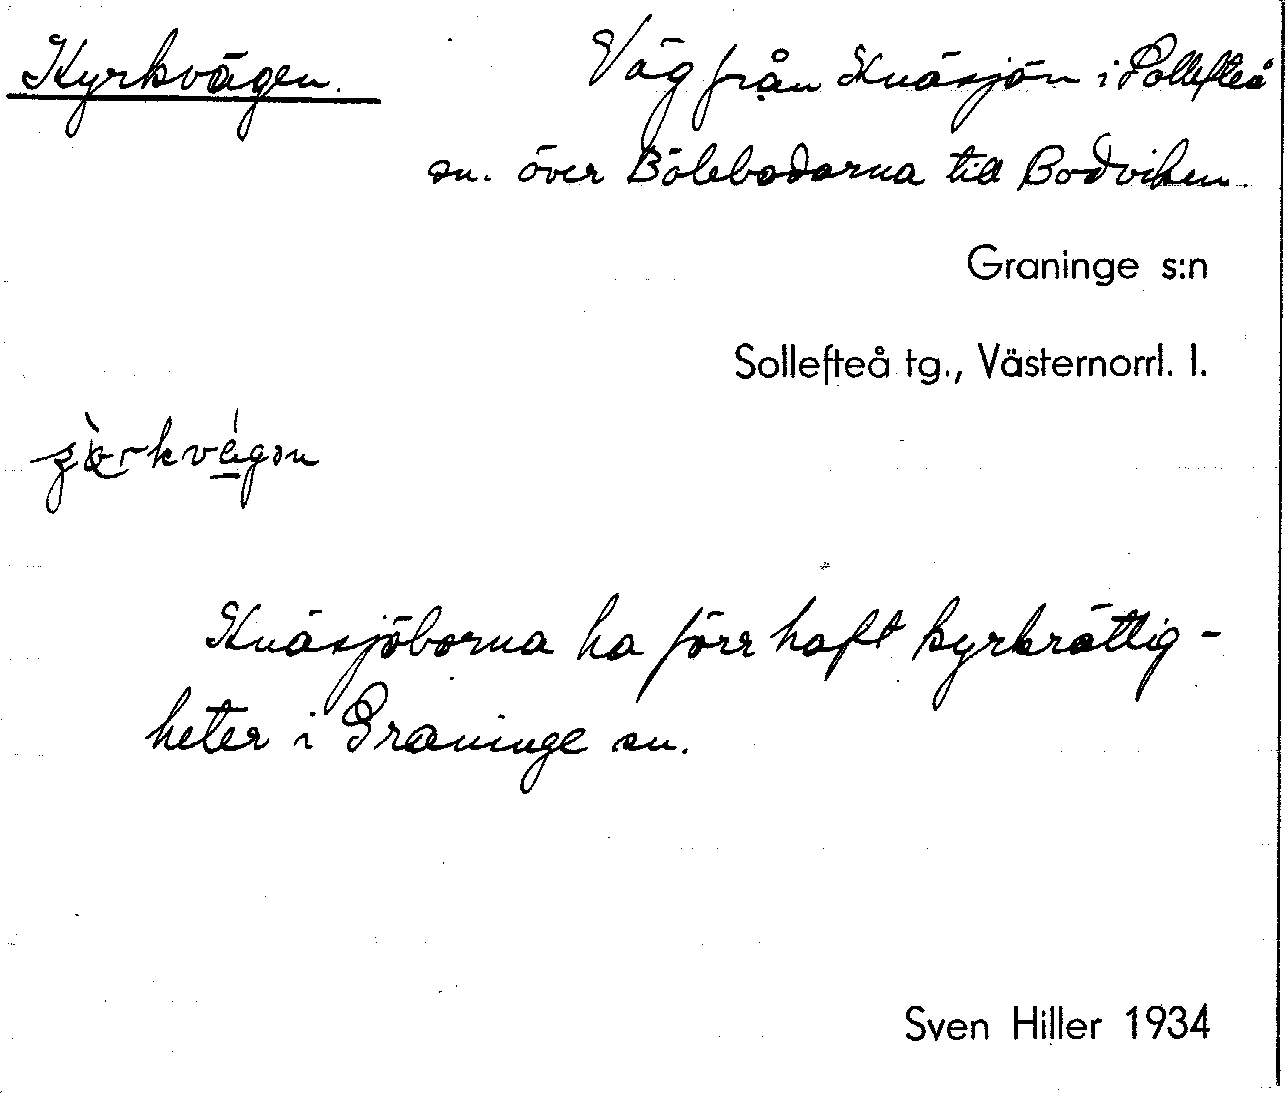 Kyrkvägen.
Väg från Knäsjön i Sollefteå
sn. över Bölebodarna till Bodviken.
Graninge s:n
Sollefteå tg., Västernorrl. l.
Knäsjöborna ha förr haft kyrkrättig-
heter i Graninge sn.
Sven Hiller 1934